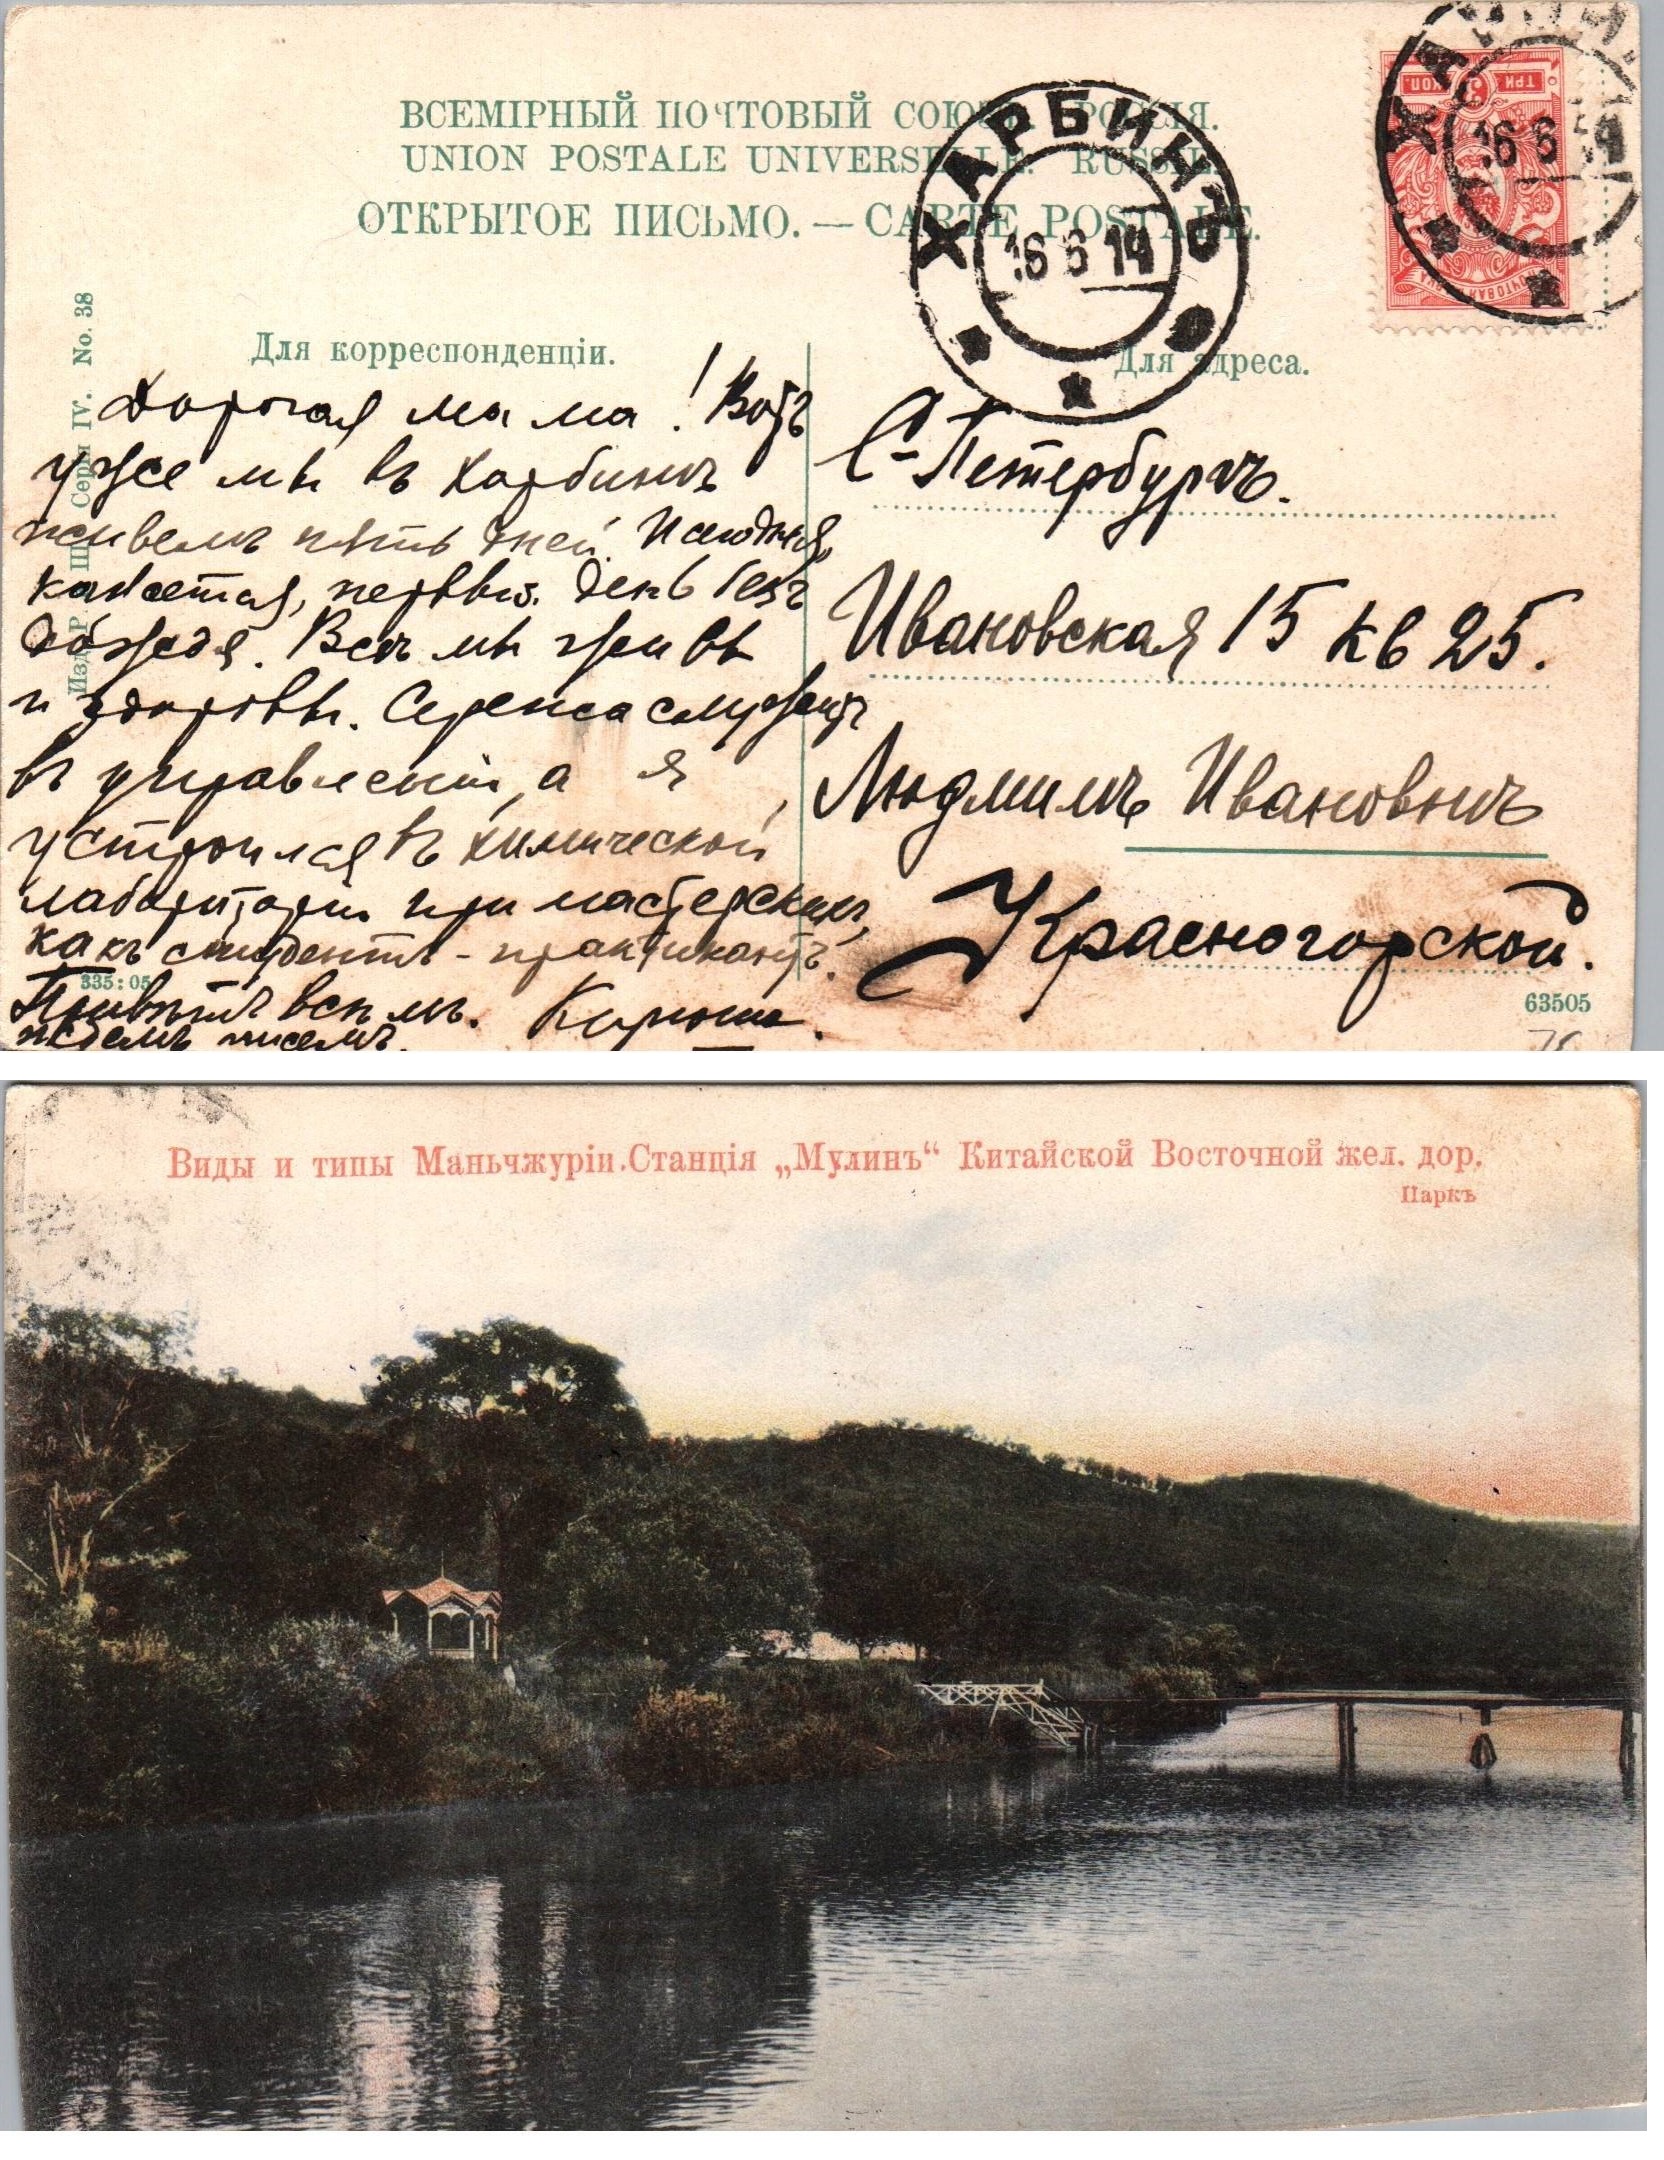 ВСЕМІРНЫЙ ПОЧТОВЫЙ СОЮЗЪ. РОССІЯ.
UNION POSTALE UNIVERSELLE. RUSSIE.
ОТКРЫТОЕ ПИСЬМО. — CARTE POSTALE.
ХАРБИНЪ
16 6 14
ХАРБИНЪ
16 6 14
ТРИ 3 КОП.
ПОЧТОВАЯ МАРКА
Серія IV. No. 38
Для корреспонденціи.
Дорогая мама! Вотъ
уже мы въ Харбинѣ
живемъ пять дней. И сегодня,
кажется, первый день безъ
дождя. Всѣ мы живы
и здоровы. Сережа служитъ
въ управленіи, а я
устроился въ химической
лабораторіи при мастерскихъ,
какъ студентъ-практикантъ.
Привѣтъ всѣмъ.
Ждемъ писемъ.
335:05
Для адреса.
С-Петербургъ.
Ивановская 15 кв 25.
Людмилѣ Ивановнѣ
Красногорской.
63505
Виды и типы Маньчжуріи. Станція „Мулинъ“ Китайской Восточной жел. дор.
Паркъ